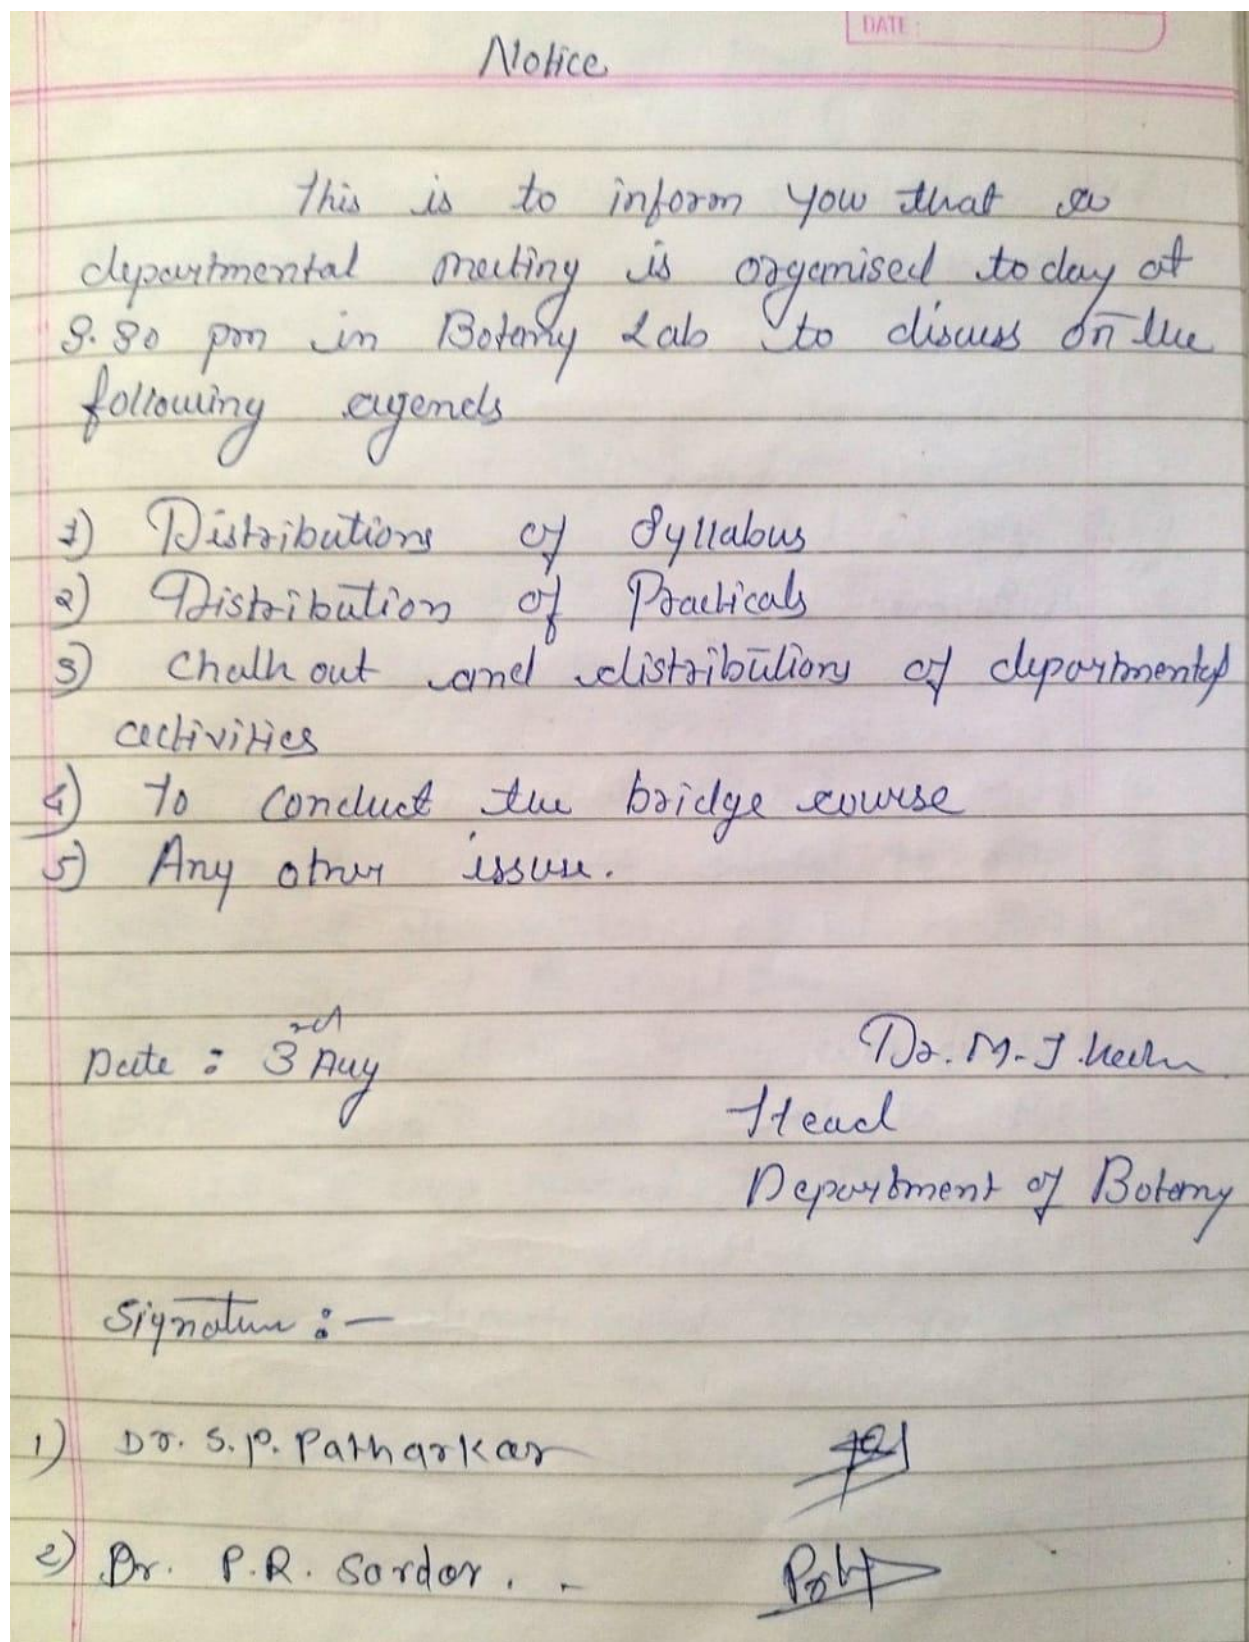 DATE :
Notice
This is to inform you that a
departmental meeting is organised today at
3.30 pm in Botany Lab to discuss on the
following agends
1) Distributions of Syllabus
2) Distribution of Practicals
3) Chalk out and distributions of departmental
activities
4) To conduct the bridge course
5) Any other issue.
Date : 3rd Aug
Dr. M. J.
Head
Department of Botany
Signature :-
1) Dr. S. P. Patharkar
2) Dr. P. R. Sardar.